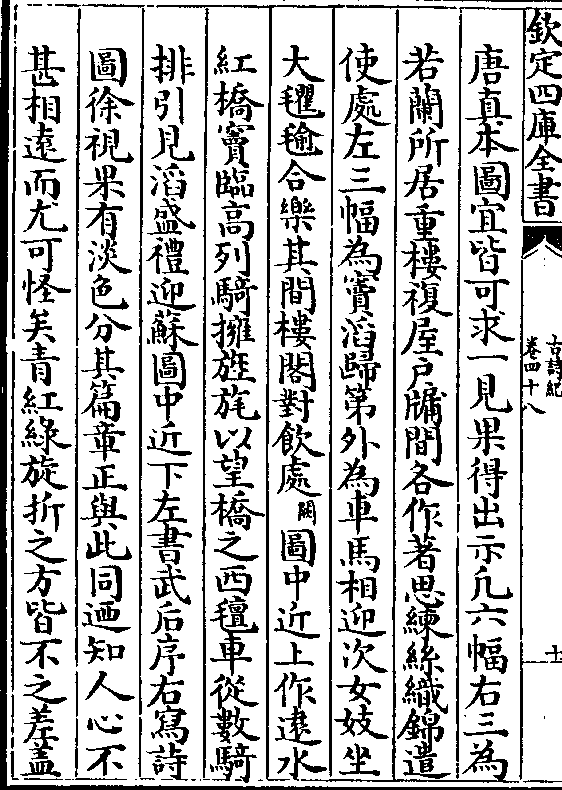 欽定四庫全書
古詩紀
卷四十八
十
唐真本圖宜皆可求一見果得出示凡六幅右三為
若蘭所居重樓複屋戶牖間各作著思練絲織錦遣
使處左三幅為竇滔歸第外為車馬相迎次女妓坐
大氍毹合樂其間樓閣對飲處闕圖中近上作遠水
紅橋竇臨高列騎擁旌旄以望橋之西氊車從數騎
排引見滔盛禮迎蘇圖中近下左書武后序右寫詩
圖徐視果有淡色分其篇章正與此同迺知人心不
甚相遠而尤可怪矣青紅綠旋折之方皆不之差蓋